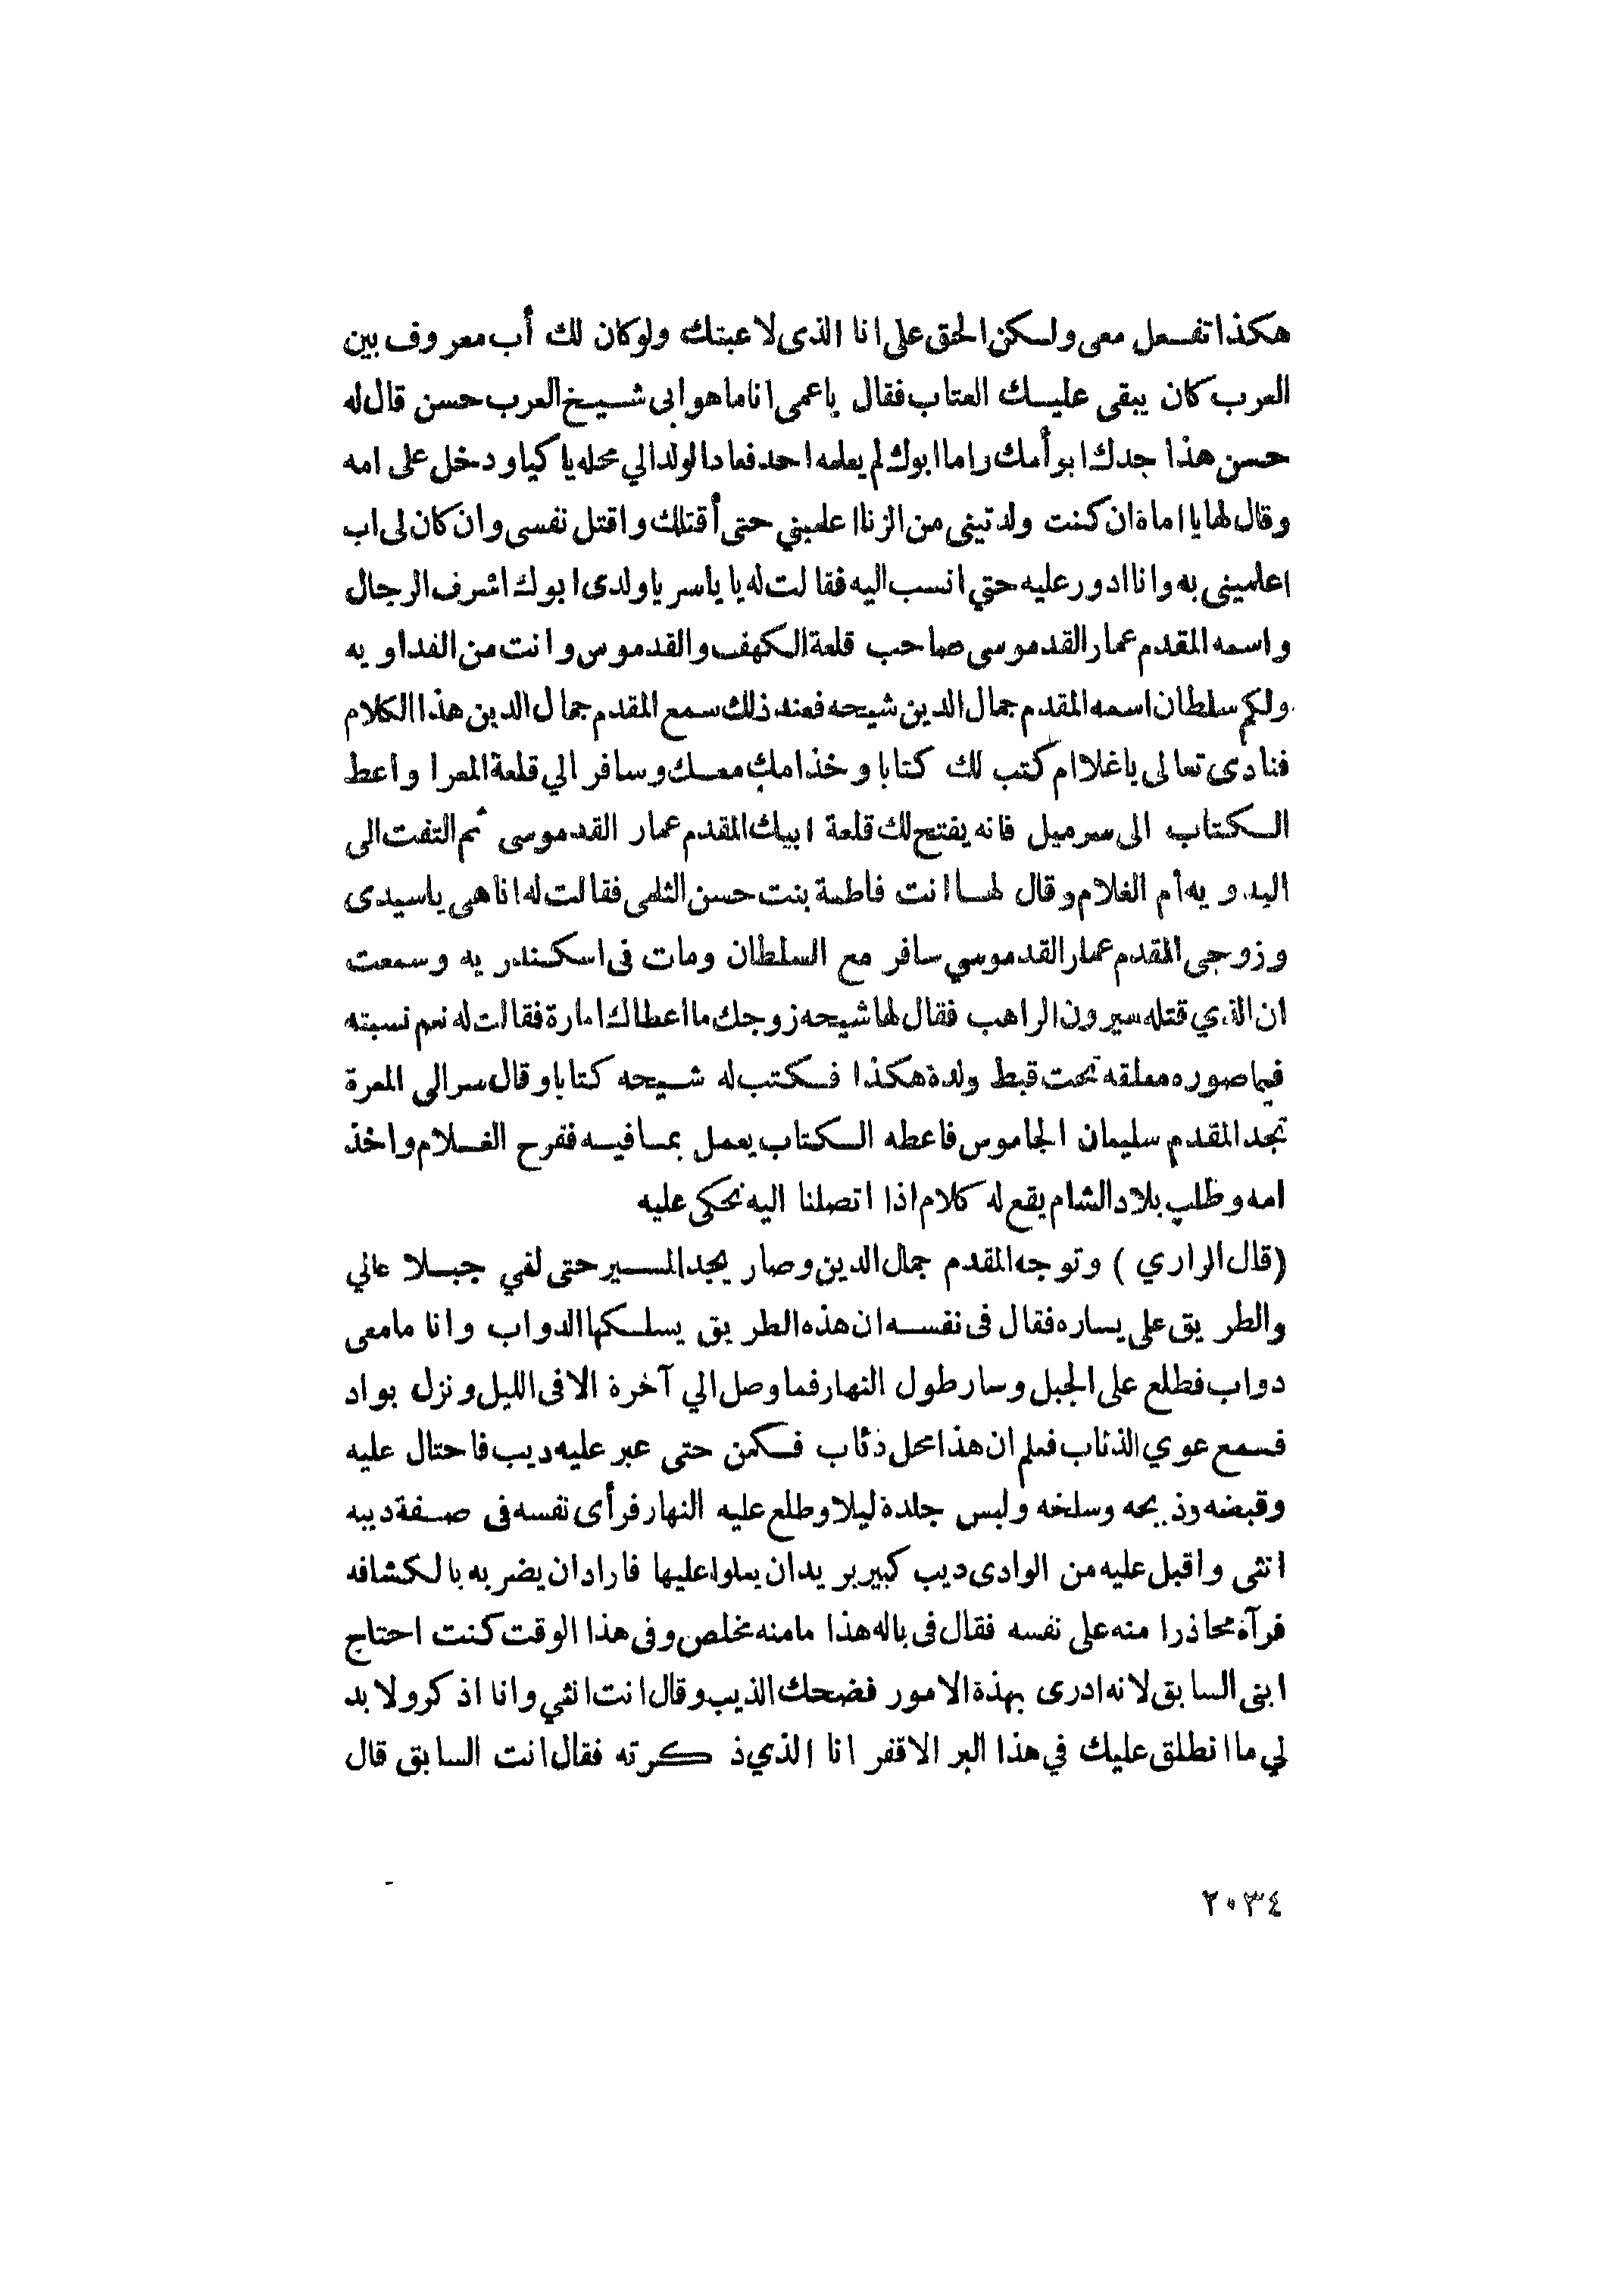 هكذا تفعل معى ولكن الحق على انا الذى لاعبتك ولو كان لك أب معروف بين
العرب كان يبقى عليك العتاب فقال ياعمى انا ما هو ابى شيخ العرب حسن قال له
حسن هذا جدك ابو أمك واما ابوك لم يعلمه احد فعاد الولد الي محله ياكيا ودخل على امه
وقال لها يا اماه ان كنت ولدتينى من الزنا اعلميني حتى أقتلك واقتل نفسى وان كان لى اب
اعلمينى به وانا ادور عليه حتي انسب اليه فقالت له يا ياسر ياولدى ابوك اشرف الرجال
واسمه المقدم عمار القدموسى صاحب قلعة الكهف والقدموس وانت من الفداويه
ولكم سلطان اسمه المقدم جمال الدين شيحه فعند ذلك سمع المقدم جمال الدين هذا الكلام
فنادى تعالى ياغلام اكتب لك كتابا وخذ امك معك وسافر الي قلعة المعرا واعط
الكتاب الى سرميل فانه يفتح لك قلعة ابيك المقدم عمار القدموسى ثم التفت الى
البدويه أم الغلام وقال لها انت فاطمة بنت حسن الثلمى فقالت له انا هى ياسيدى
وزوجى المقدم عمار القدموسي سافر مع السلطان ومات فى اسكندريه وسمعت
ان الذي قتله سيرون الراهب فقال لها شيحه زوجك ما اعطاك امارة فقالت له نعم نسبته
فيها صوره معلقه تحت قبط ولدة هكذا فكتب له شيحه كتابا وقال سر الى المعرة
تجد المقدم سليمان الجاموس فاعطه الكتاب يعمل بما فيه ففرح الغلام واخذ
امه وطلب بلاد الشام يقع له كلام اذا اتصلنا اليه نحكى عليه
(قال الراري ) وتوجه المقدم جمال الدين وصار يجد المسير حتى لقي جبلا عالي
والطريق على يساره فقال فى نفسه ان هذه الطريق يسلكها الدواب وانا مامعى
دواب فطلع على الجبل وسار طول النهار فما وصل الي آخرة الا فى الليل ونزل بواد
فسمع عوي الذئاب فعلم ان هذا محل ذئاب فكمن حتى عبر عليه ديب فاحتال عليه
وقبضه وذبحه وسلخه ولبس جلدة ليلا وطلع عليه النهار فرأى نفسه فى صفة ديبه
انثى واقبل عليه من الوادى ديب كبير يريد ان يعلوا عليها فاراد ان يضربه بالكشافه
فرآة محاذرا منه على نفسه فقال فى باله هذا مامنه مخلص وفى هذا الوقت كنت احتاج
ابنى السابق لانه ادرى بهذة الامور فضحك الذيب وقال انت انثي وانا اذكر ولا بد
لي ما انطلق عليك في هذا البر الاقفر انا الذي ذكرته فقال انت السابق قال
٢٠٣٤